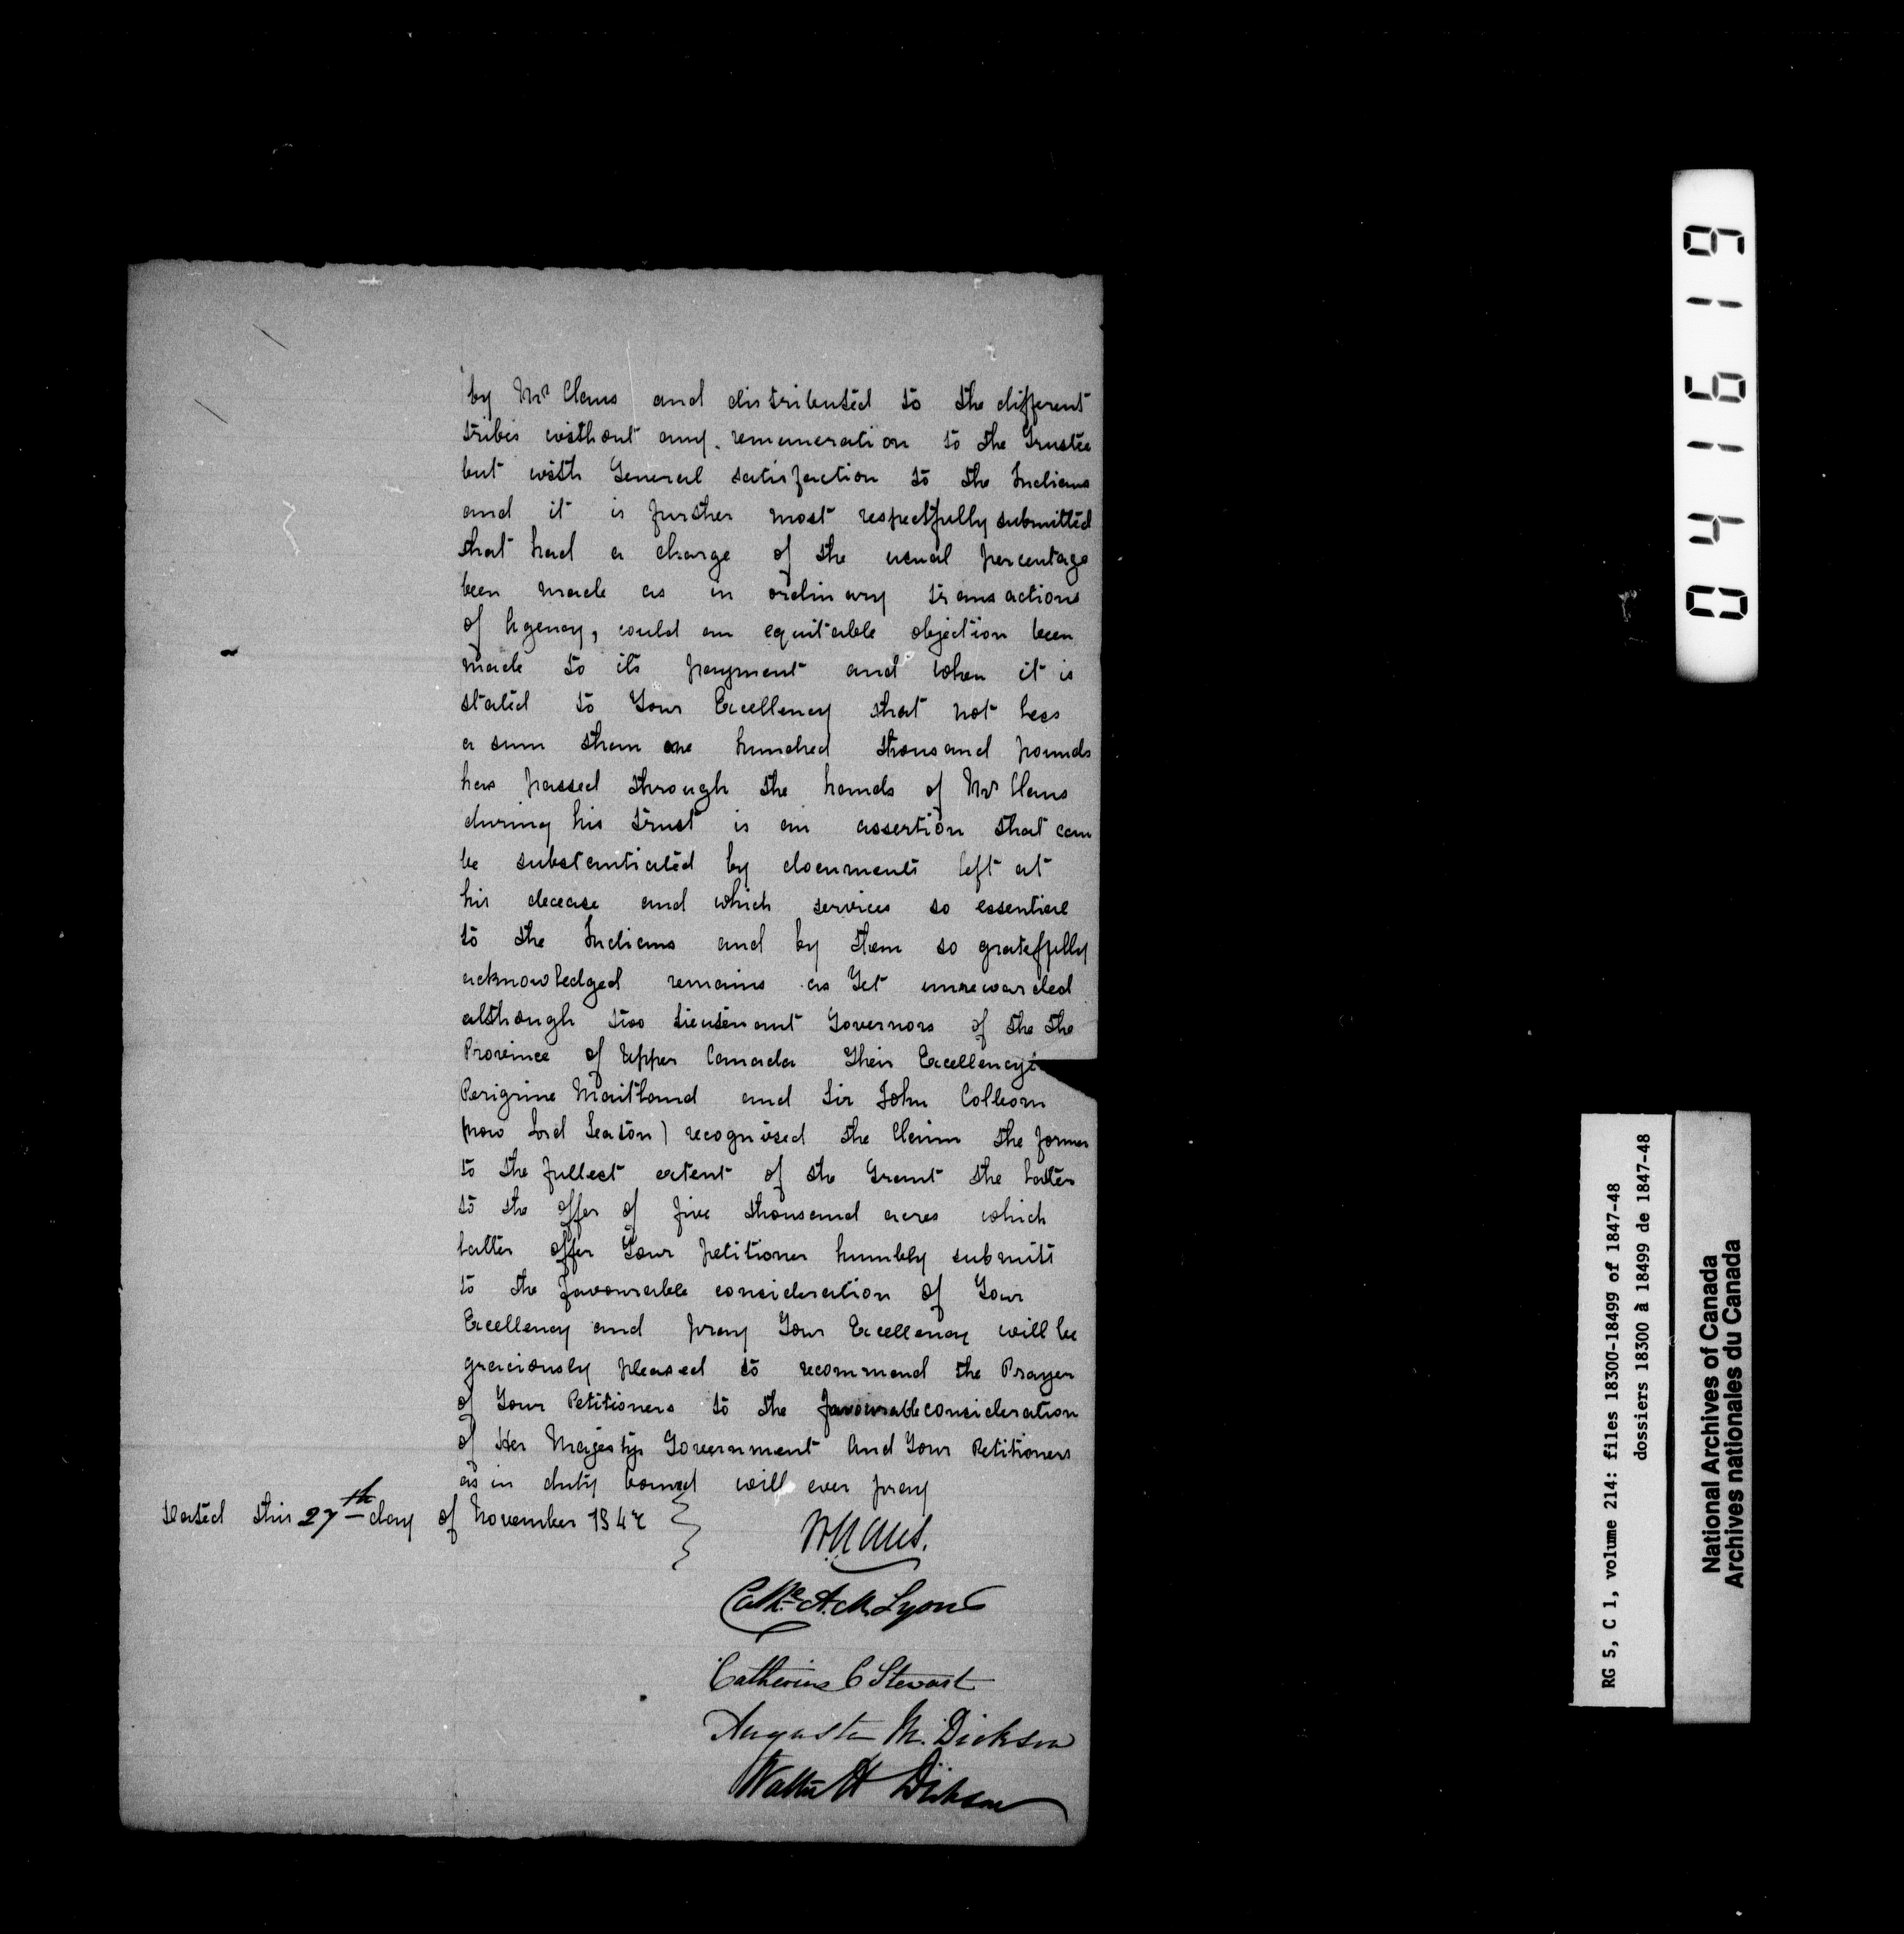 by Mr Claus and distributed to the different
tribes without any remuneration to the Trustee
but with General satisfaction to the Indians
and it is further most respectfully submitted
that had a charge of the usual percentage
been made as in ordinary transactions
of Agency, could an equitable objection been
made to its payment and when it is
stated to Your Excellency that not less
a sum than one hundred thousand pounds
has passed through the hands of Mr Claus
during his trust is an assertion that can
be substantiated by documents left at
his decease and which services so essential
to the Indians and by them so gratefully
acknowledged remains as Yet unrewarded
although two Lieutenant Governors of the the
Province of Upper Canada Their Excellency
Perigrine Maitland and Sir John Colborn
(now Lord Seaton) recognised the Claim the former
to the fullest extent of the Grant the latter
to the offer of five thousand acres which
latter offer Your petitioner humbly submits
to the favourable consideration of Your
Excellency and pray Your Excellency will be
graciously pleased to recommend the Prayer
of Your Petitioners to the favourable consideration
of Her Majestys Government And Your Petitioners
as in duty bound will ever pray
Dated this 27th day of November 184
Cathe A. M. Lyons
Catherine C Stewart
Augusta M. Dickson
Walter H Dickson
041619
RG 5, C 1, volume 214: files 18300-18499 of 1847-48
dossiers 18300 à 18499 de 1847-48
National Archives of Canada
Archives nationales du Canada